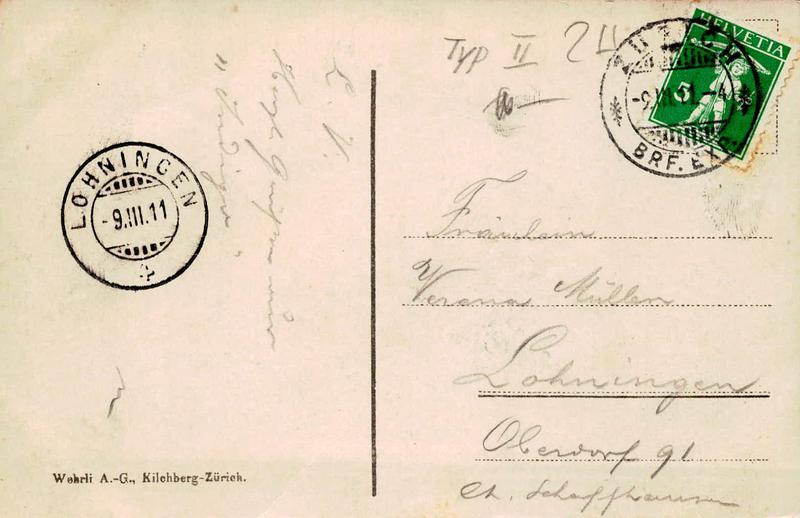 Typ II 24
HELVETIA
5
ZÜRICH
-9.III.11.-4
BRF. EXP.
LOHNINGEN
-9.III.11
L. V.
" Indigo "
Fräulein
Verena Müller
Löhningen
Oberdorf 91
Ct. Schaffhausen
Wehrli A.-G., Kilchberg-Zürich.